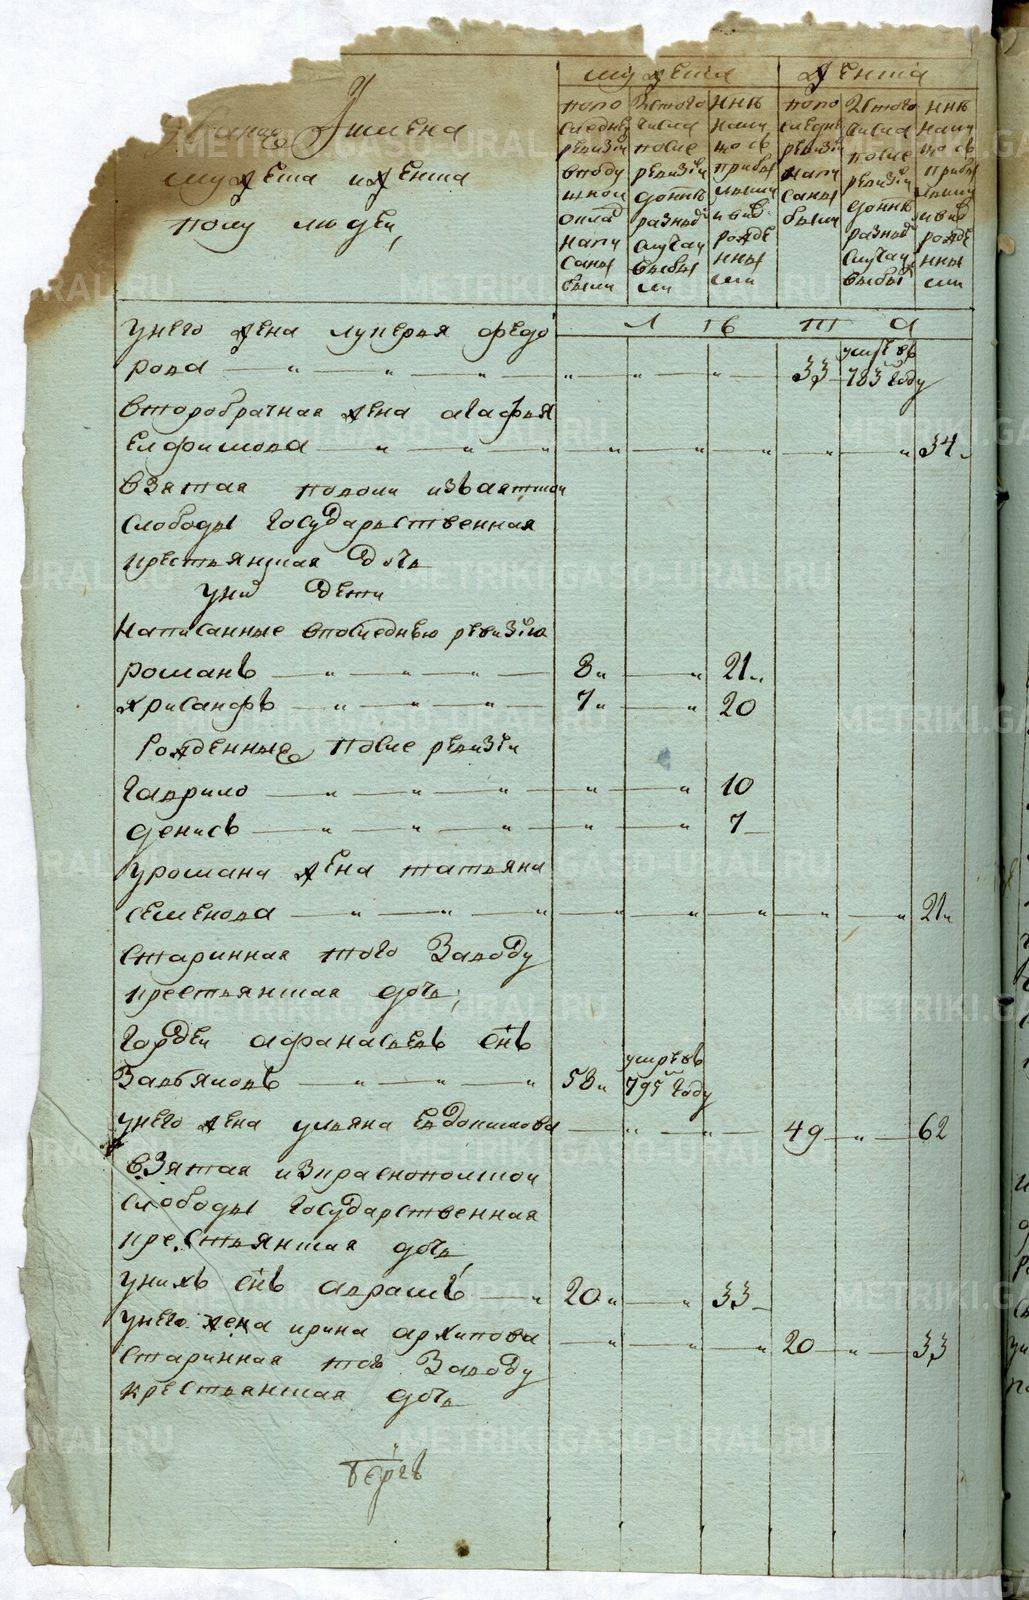 мужеска
женска
имена
мужеска и женска
полу людей,
по по
следней
ревизии
в поду
шной
оклад
напи
саны
были
Из того
числа
после
ревизии
до ныне
разными
случаи
выбы
ли
ныне
нали
цо съ
прибы
лыми
и вновь
рожде
нны
ми
по по
следней
ревизии
напи
саны
были
Из того
числа
после
ревизии
до ныне
разными
случаи
выбы
ныне
нали
цо съ
прибы
лыми
и вновь
рожде
нны
ми
Л ѣ т а
у него жена лукерья федо
рова 33 умре въ 783 году
второбрачная жена агафья
Елфимова 34
взятая
слободы государственная
крестьянская дочь
у них дети
написанные в последнею ревизию
романъ 8 21
хрисанфъ 7 20
рожденные после ревизии
гаврило 10
денисъ 7
у романа жена татьяна
семенова 21
старинная того заводу
крестьянская дочь
гордей афанасьевъ снъ
Завьяловъ 58 умре въ 795 году
у него жена ульяна Евдокимова 49 62
взятая из краснопольской
слободы государственная
крестьянская дочь
у нихъ снъ аврамъ 20 33
у него жена ирина архипова 20 33
старинная тогъ заводу
крестьянская дочь
METRIKI.GASO-URAL.RU